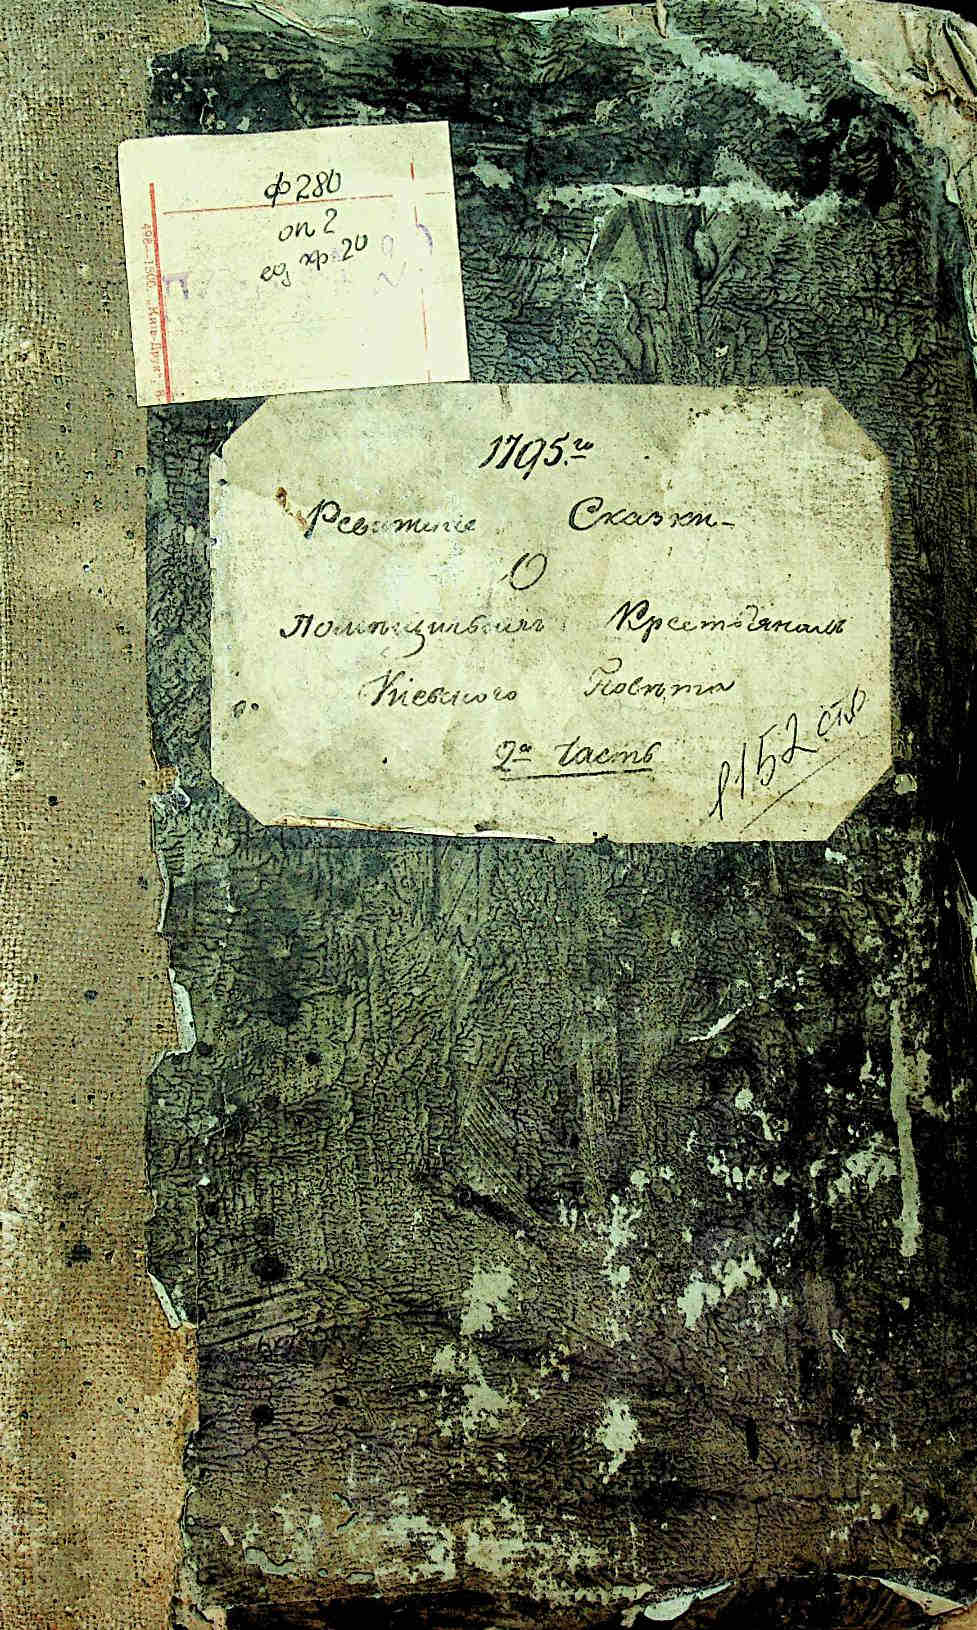 ф 280
оп 2
ед хр 20
1795.го
Ревижние Сказки-
О
Помѣщичьимъ Крестьянамъ
Кіевского Повѣта
2я Часть
1152 стр